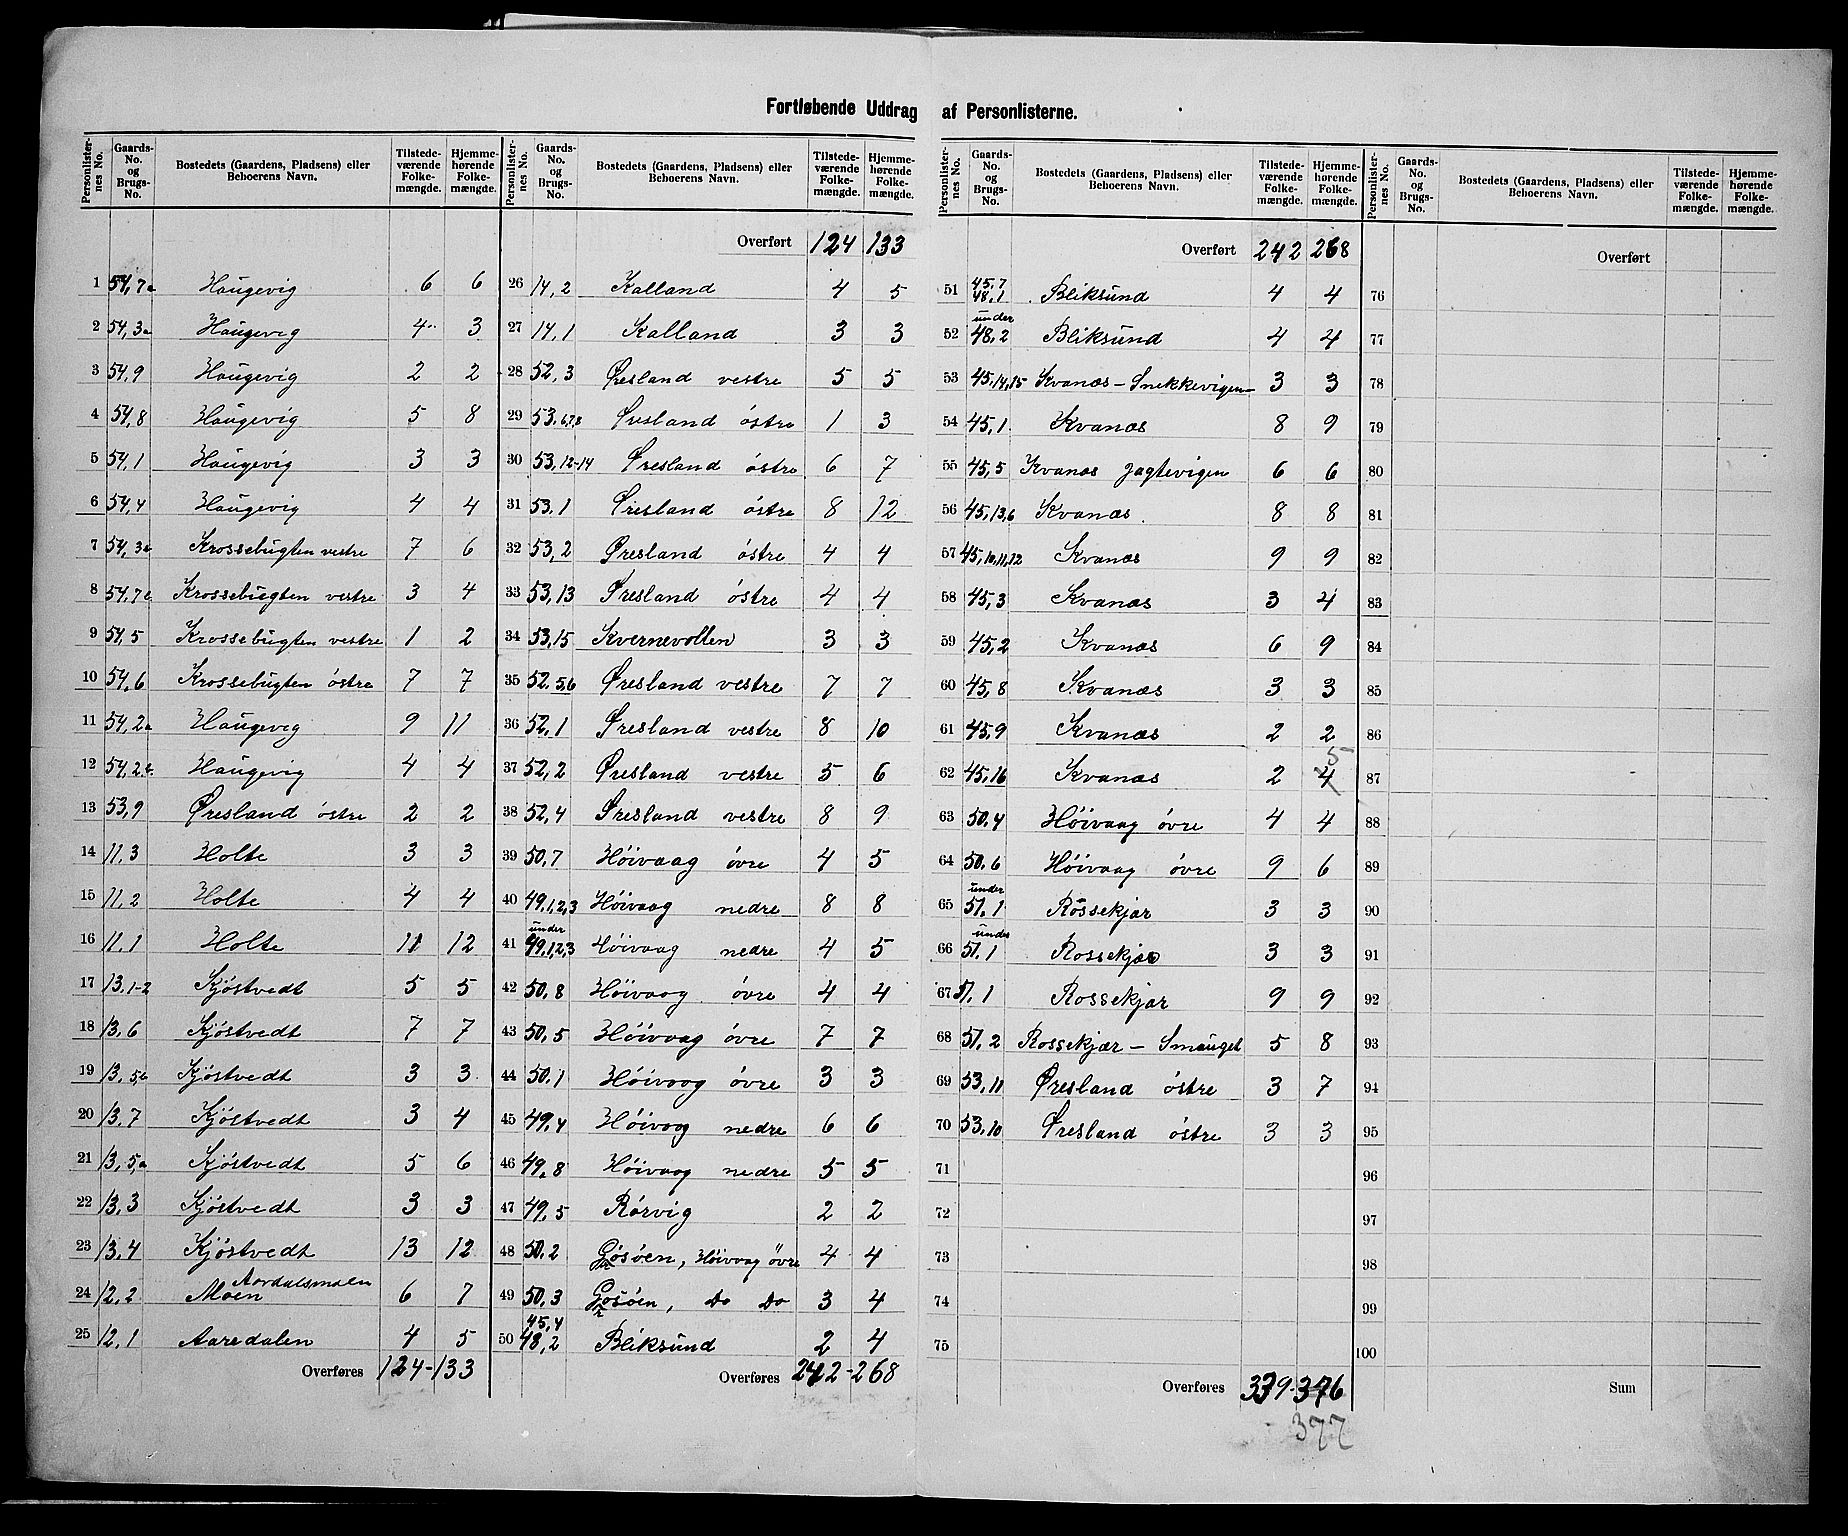 Fortløbende Uddrag af Personlisternes.
Personlister-nes No. | Gaards-No. og Brugs-No. | Bostedets (Gaardens, Pladsens) eller Beboerens Navn. | Tilstede-værende Folke-mængde. | Hjemme-hørende Folke-mængde.
1 54,7a Haugevig 6 6
2 54,3a Haugevig 4 3
3 54,9 Haugevig 2 2
4 54,8 Haugevig 5 8
5 54,1 Haugevig 3 3
6 54,4 Haugevig 4 4
7 54,3b Krossebugten vestre 7 6
8 54,7b Krossebugten vestre 3 4
9 54,5 Krossebugten vestre 1 2
10 54,6 Krossebugten östre 7 7
11 54,2a Haugevig 9 11
12 54,2b Haugevig 4 4
13 53,9 Øresland östre 2 2
14 11,3 Holte 3 3
15 11,2 Holte 4 4
16 11,1 Holte 11 12
17 13,1-2 Kjöstvedt 5 5
18 13,6 Kjöstvedt 7 7
19 13,5,b Kjöstvedt 3 3
20 13,7 Kjöstvedt 3 4
21 13,5,a Kjöstvedt 5 6
22 13,3 Kjöstvedt 3 3
23 13,4 Kjöstvedt 13 12
24 12,2 Moen Aardalsmoen 6 7
25 12,1 Aaredalen 4 5
Overføres 124-133
Personlister-nes No. | Gaards-No. og Brugs-No. | Bostedets (Gaardens, Pladsens) eller Beboerens Navn. | Tilstede-værende Folke-mængde. | Hjemme-hørende Folke-mængde.
Overført 124 133
26 14,2 Kalland 4 5
27 14,1 Kalland 3 3
28 52,3 Øresland vestre 5 5
29 53,6,7,8 Øresland östre 1 3
30 53,12-14 Øresland östre 6 7
31 53,1 Øresland östre 8 12
32 53,2 Øresland östre 4 4
33 53,13 Øresland östre 4 4
34 53,15 Kvernevolden 3 3
35 52,5,6 Øresland vestre 7 7
36 52,1 Øresland vestre 8 10
37 52,2 Øresland vestre 5 6
38 52,4 Øresland vestre 8 9
39 50,7 Höivaag övre 4 5
40 49,1,2,3 Höivaag nedre 8 8
41 under 49,1,2,3 Höivaag nedre 4 5
42 50,8 Höivaag övre 4 4
43 50,5 Höivaag övre 7 7
44 50,1 Höivaag övre 3 3
45 49,4 Höivaag nedre 6 6
46 49,8 Höivaag nedre 5 5
47 49,5 Rörvig 2 2
48 50,2 Gösöen, Höivaag övre 4 4
49 50,3 Gösöen, Do Do 3 4
50 45,4 48,2 Bliksund 2 4
Overføres 242-268
Personlister-nes No. | Gaards-No. og Brugs-No. | Bostedets (Gaardens, Pladsens) eller Beboerens Navn. | Tilstede-værende Folke-mængde. | Hjemme-hørende Folke-mængde.
Overført 242 268
51 45,7 48,1 Bliksund 4 4
52 under 48,2 Bliksund 4 4
53 45,14,15 Kvanæs-Snekkevigen 3 3
54 45,1 Kvanæs 8 9
55 45,5 Kvanæs Jagtevigen 6 6
56 45,13,6 Kvanæs 8 8
57 45,10,11,12 Kvanæs 9 9
58 45,3 Kvanæs 3 4
59 45,2 Kvanæs 6 9
60 45,8 Kvanæs 3 3
61 45,9 Kvanæs 2 2
62 45,16 Kvanæs 2 4 5
63 50,4 Höivaag övre 4 4
64 50,6 Höivaag övre 9 6
65 under 51,1 Rossekjær 3 3
66 under 51,1 Rossekjær 3 3
67 51,1 Rossekjær 9 9
68 51,2 Rossekjær - Smauget 5 8
69 53,11 Øresland östre 3 7
70 53,10 Øresland östre 3 3
71
72
73
74
75
Overføres 339-376
377
Personlister-nes No. | Gaards-No. og Brugs-No. | Bostedets (Gaardens, Pladsens) eller Beboerens Navn. | Tilstede-værende Folke-mængde. | Hjemme-hørende Folke-mængde.
Overført
76
77
78
79
80
81
82
83
84
85
86
87
88
89
90
91
92
93
94
95
96
97
98
99
100
Sum